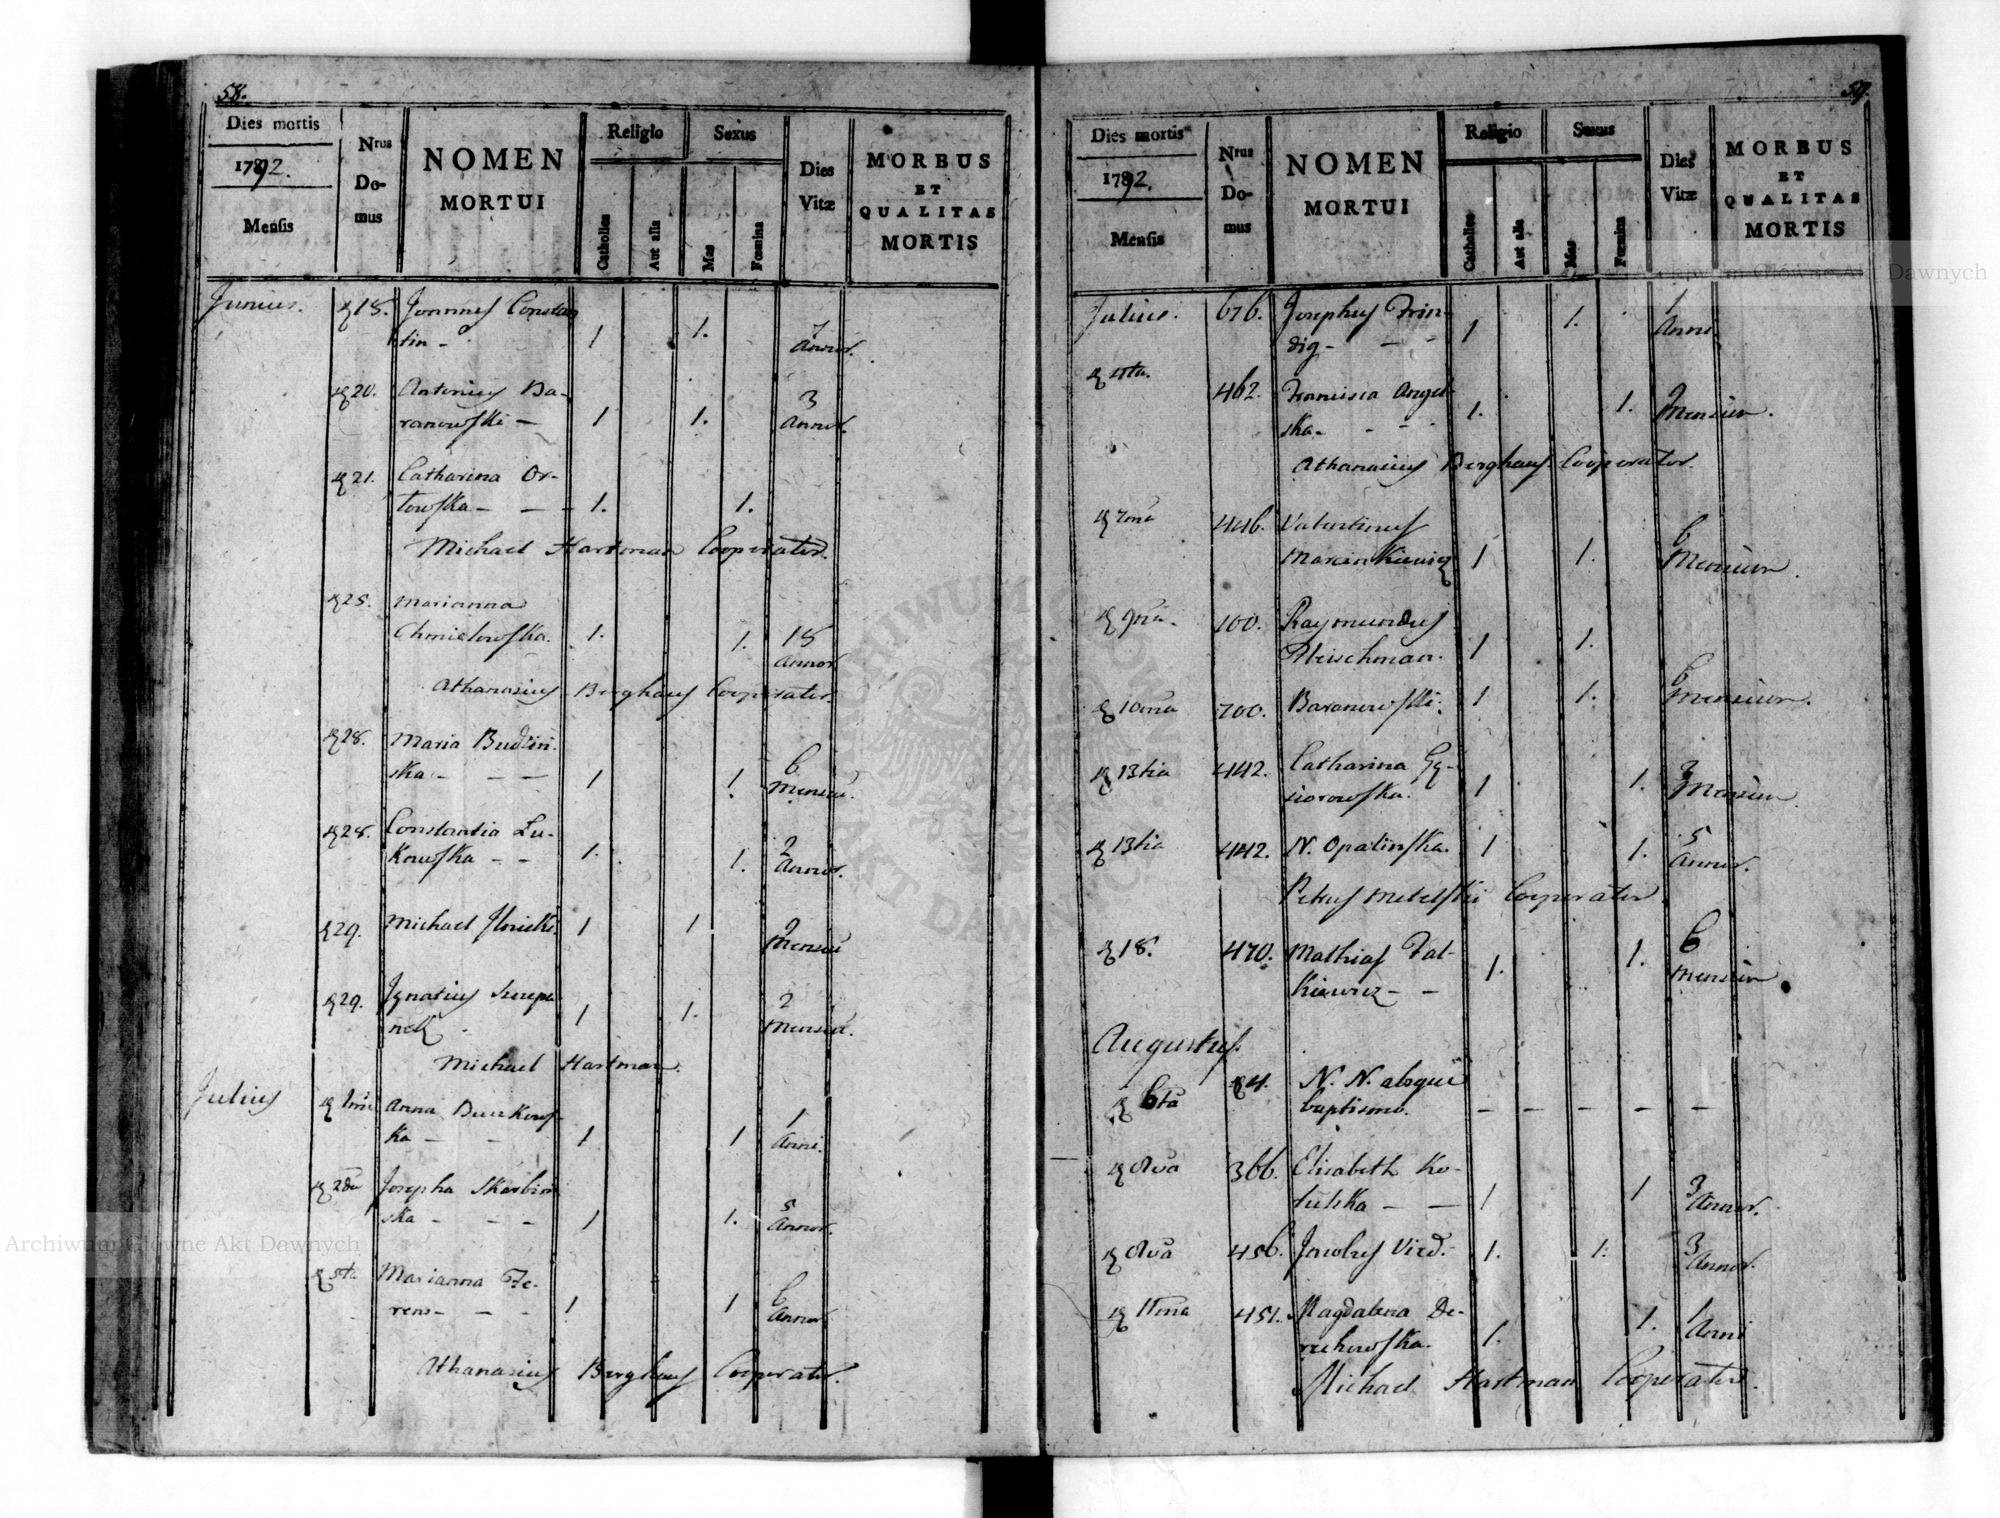 58.
Dies mortis
1792.
Mensis
Nrus Do-
mus
NOMEN
MORTUI
Religio
Catholica
Aut alia
Sexus
Mas
Fœmina
Dies
Vitæ
MORBUS
ET
QUALITAS
MORTIS
Junius. 18. Joannes Constan
tin - 1 1. 7
Annor.
20. Antonius Ba-
ranowski - 1 1. 3
Annor.
21. Catharina Or-
towska - - - 1. 1.
Michael Hartman Cooperator.
25. Marianna
Chmielowska. 1. 1. 18
Annor.
Athanasius Berghaus Cooperator.
28. Maria Budzin
ska - - - 1 1. 6
Mensiu.
28. Constantia Lu-
kowska - - 1. 1. 2
Annor.
29. Michael Ilnicki. 1 1 2
Mensiu
29. Ignatius
1 1. 2
Mensiu.
Michael Hartman.
Julius 1ma Anna
ka - - 1 1 1
Anni.
2da Josepha Skarbin
ska - - - 1 1. 5
Annor.
5ta Marianna Fe-
rens - - - 1 1 6
Annor
Athanasius Berghaus Cooperator.
59.
Dies mortis
1792.
Mensis
Nrus
Do-
mus
NOMEN
MORTUI
Religio
Catholica
Aut alia
Sexus
Mas
Fœmina
Dies
Vitæ
MORBUS
ET
QUALITAS
MORTIS
Julius. 676. Josephus Frin-
dig - - - 1 1. 1
Anni
462. Francisca Angel
ska - - - 1. 1. 2
Mensium.
Athanasius Berghaus Cooperator.
7ma 446. Valentinus
Marcinkiewicz 1 1. 6
Mensium.
9na. 100. Raymundus
Fleischman. 1 1.
10ma 700. Baranowski. 1 1. 6
Mensium.
13tia 442. Catharina Gą-
siorowska. 1 1. 2
Mensium.
13tia 442. N. Opalinska. 1 1. 5
Annor.
Petrus Metelski Cooperator.
18. 470. Mathias Fal-
kiewicz - - 1. 1. 6
Mensium
Augustus.
6ta 84. N. N. absque
baptismo. - - - - -
8va 366. Elisabeth Ko-
tulska - - 1 1 3
Annor.
8va 456. Jacobus Vird. 1. 1. 3
Annor.
11ma 451. Magdalena De-
rechowska. 1. 1. 1
Anni
Michael Hartman Cooperator.
Archiwum Główne Akt Dawnych
Archiwum Główne Akt Dawnych
ARCHIWUM GŁÓWNE AKT DAWNYCH